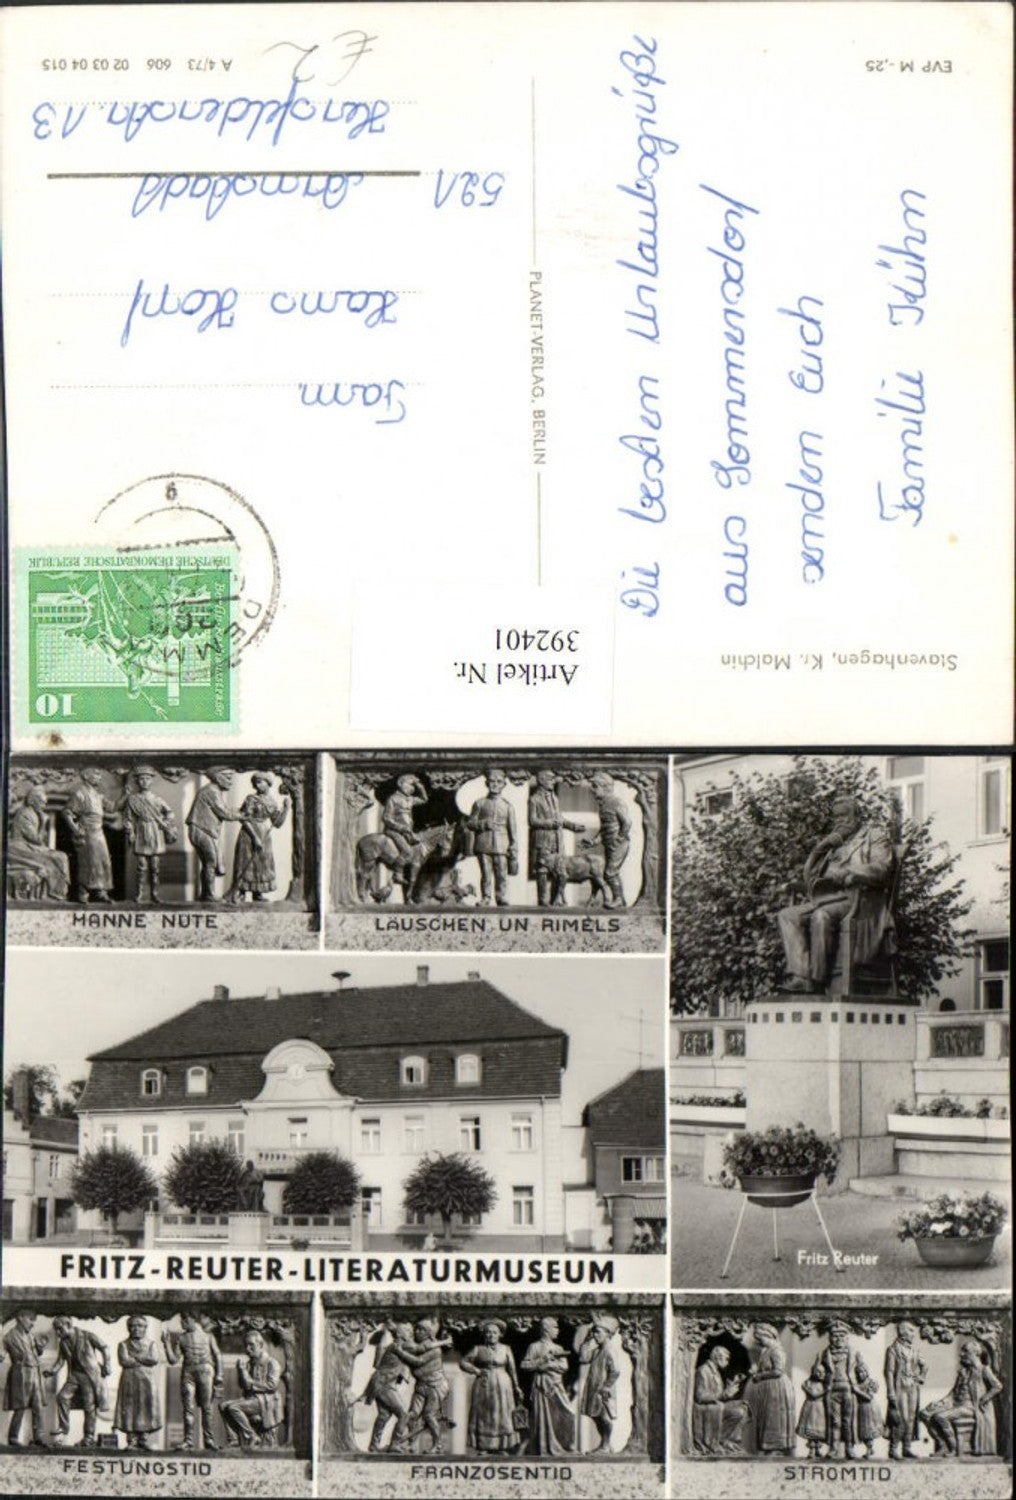 A 4/73 606 02 03 04 015
EVP M -,25
Die besten Urlaubsgrüße
aus Sommersdorf
senden Euch
Familie Kühn
Fam.
Hans Hopf
521 Armstadt
Hersfelderstr. 13
PLANET-VERLAG, BERLIN
Stavenhagen, Kr. Malchin
Artikel Nr.
392401
DEUTSCHE DEMOKRATISCHE REPUBLIK
10
DEMMIN
HANNE NÜTE
LÄUSCHEN UN RIMELS
FRITZ-REUTER-LITERATURMUSEUM
Fritz Reuter
FESTUNGSTID
FRANZOSENTID
STROMTID